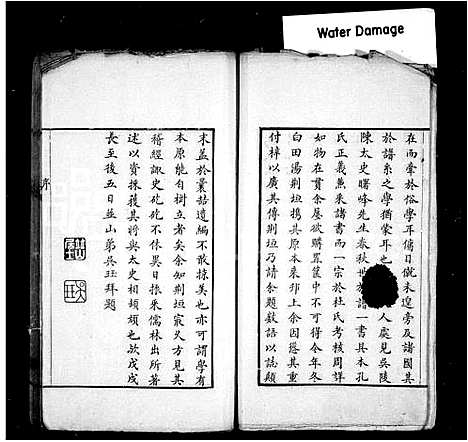 Water Damage
在而牽於俗學耳傳日僦未遑旁及諸國其
於譜系之學猶蒙耳也 人處見吳陵
陳太史曙峰先生春秋世族譜一書其本孔
氏正義兼采諸書而一宗於杜氏考核周詳
如物在貫余屡欲購置篋中不可得今年冬
白田湯荆垣携其原本来邗上余因慫其重
付梓以廣其傳荆垣乃請余題数語以誌顛
末盖於曩喆遺編不敢掠美也亦可謂學有
本原能自樹立者矣余知荆垣冣久方見其
稽經諏史矻矻不休異日採乘儒林出所著
述以資採獲其將與太史相頡頏也歟戊戌
長至後五日並山弟吳珏拜題
序